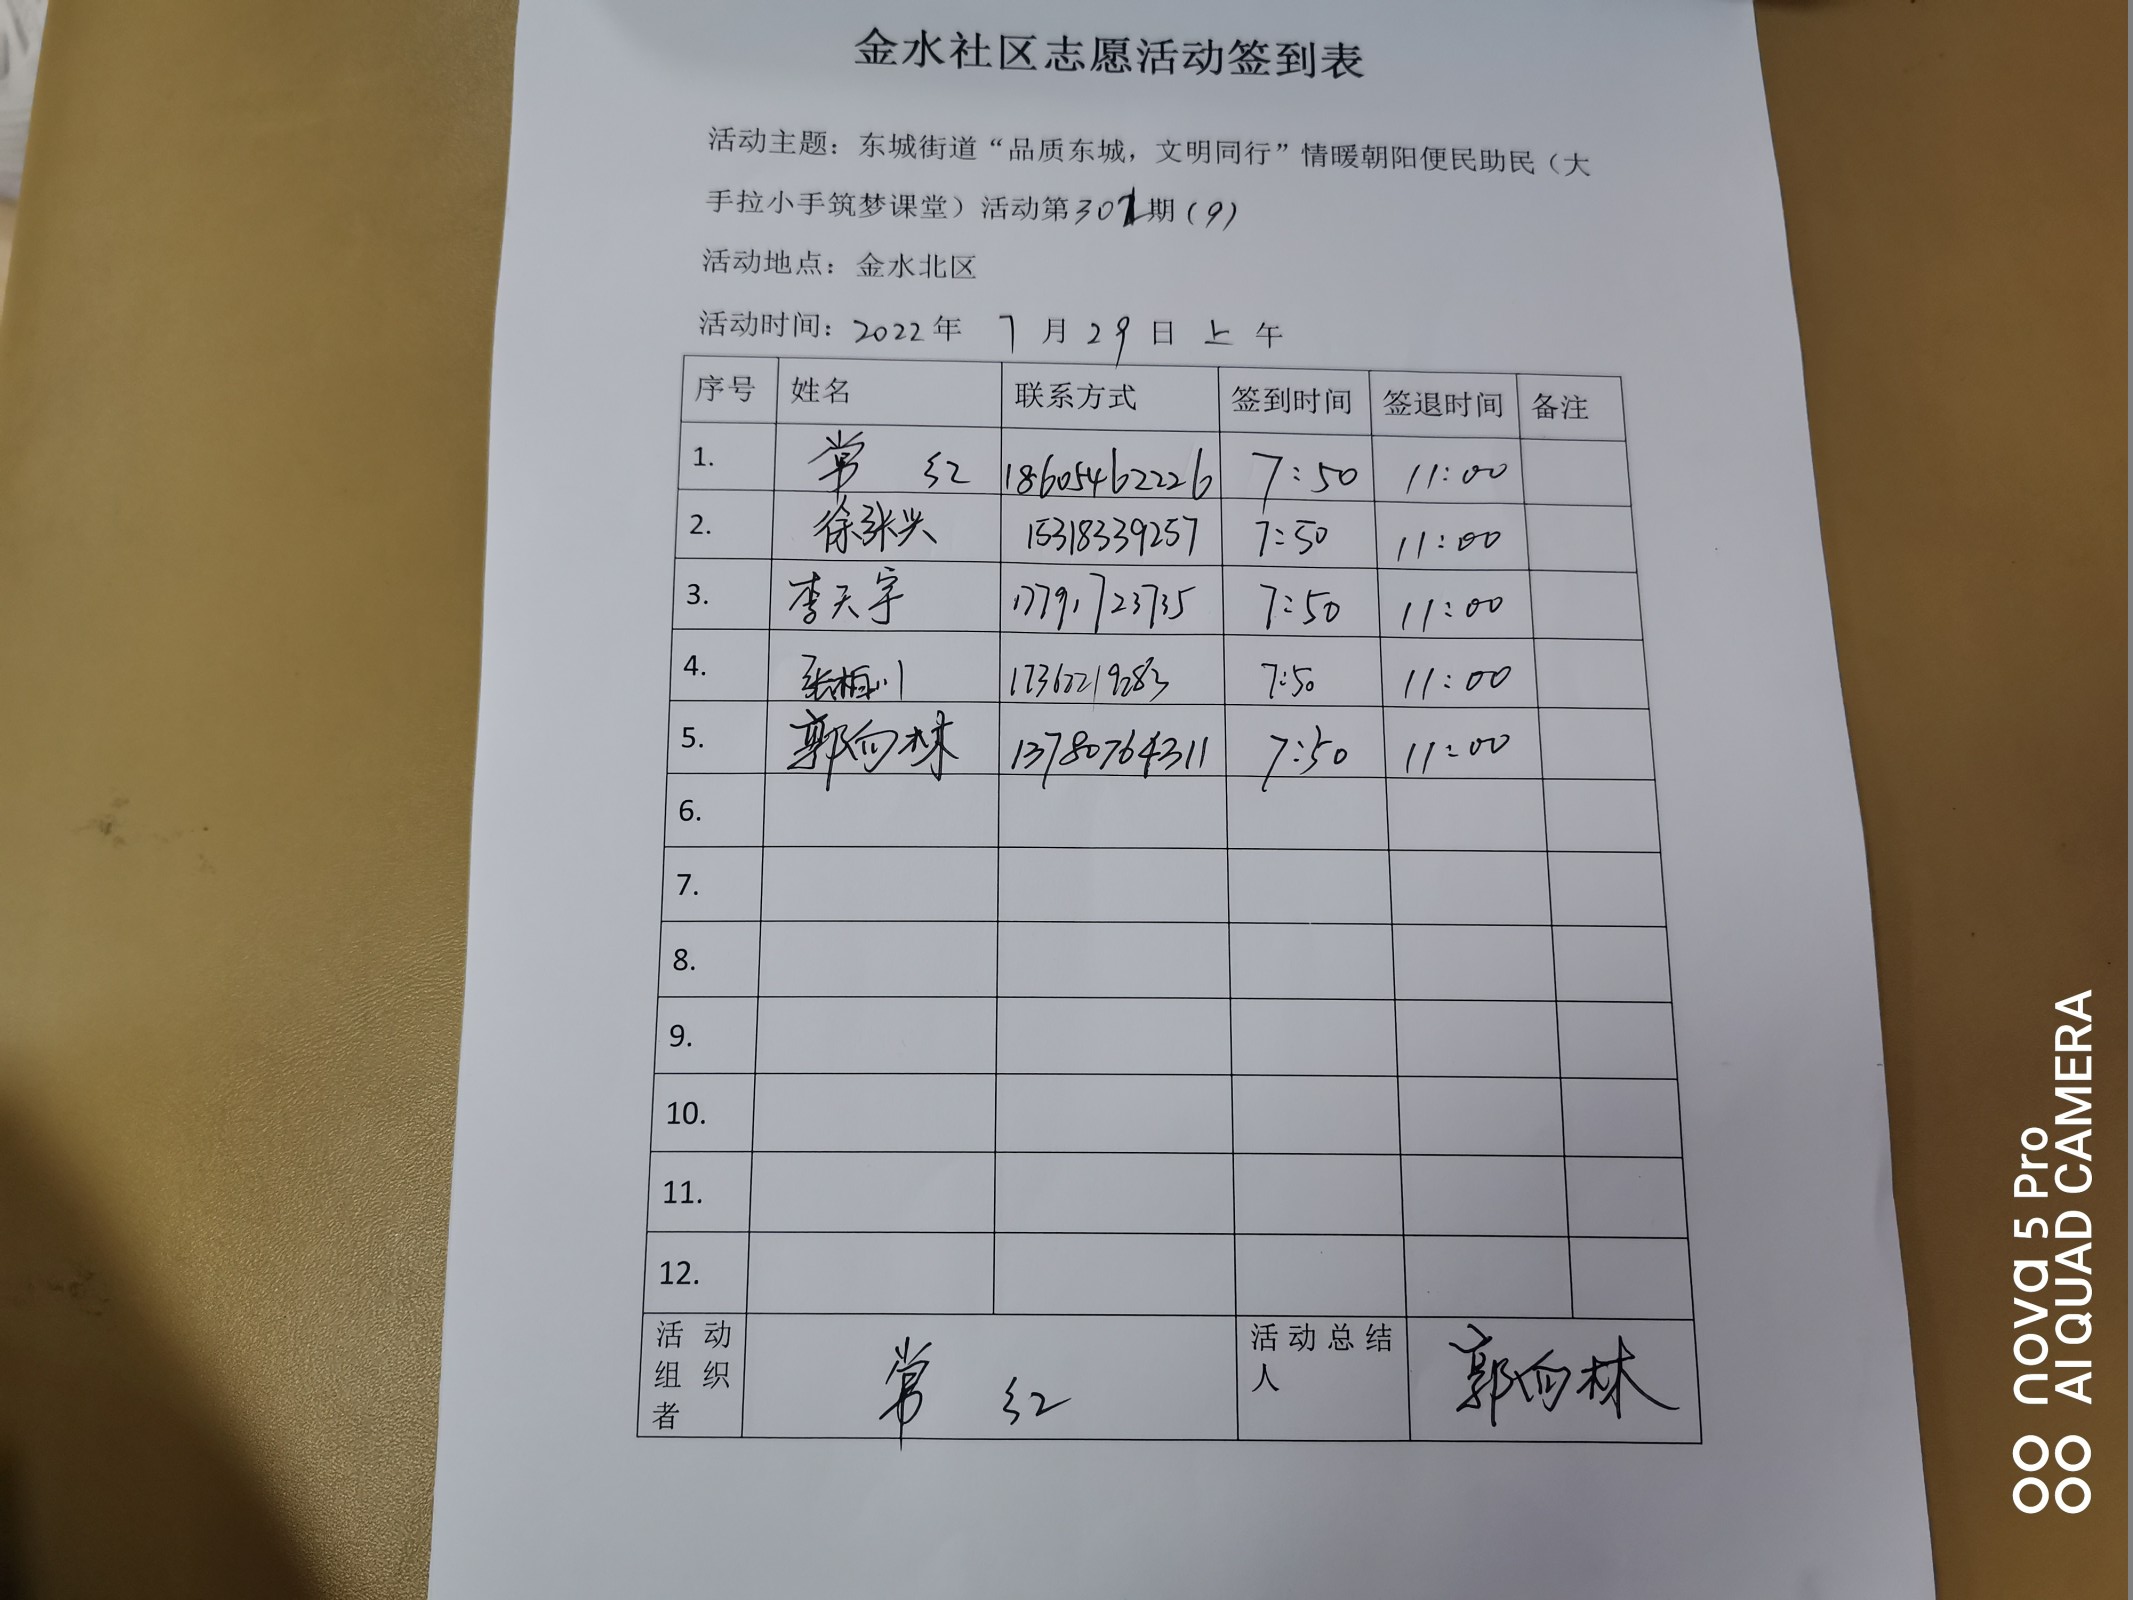 金水社区志愿活动签到表
活动主题：东城街道“品质东城，文明同行”情暖朝阳便民助民（大
手拉小手筑梦课堂）活动第301期(9)
活动地点：金水北区
活动时间：2022年 7月29日 上午
序号 姓名 联系方式 签到时间 签退时间 备注
1. 常红 18605462226 7:50 11:00
2. 徐张兴 15318339257 7:50 11:00
3. 李天宇 17791723735 7:50 11:00
4. 张相川 17362219283 7:50 11:00
5. 郭向林 13780764311 7:50 11:00
6.
7.
8.
9.
10.
11.
12.
活动组织者 常红 活动总结人 郭向林
nova 5 Pro
AI QUAD CAMERA